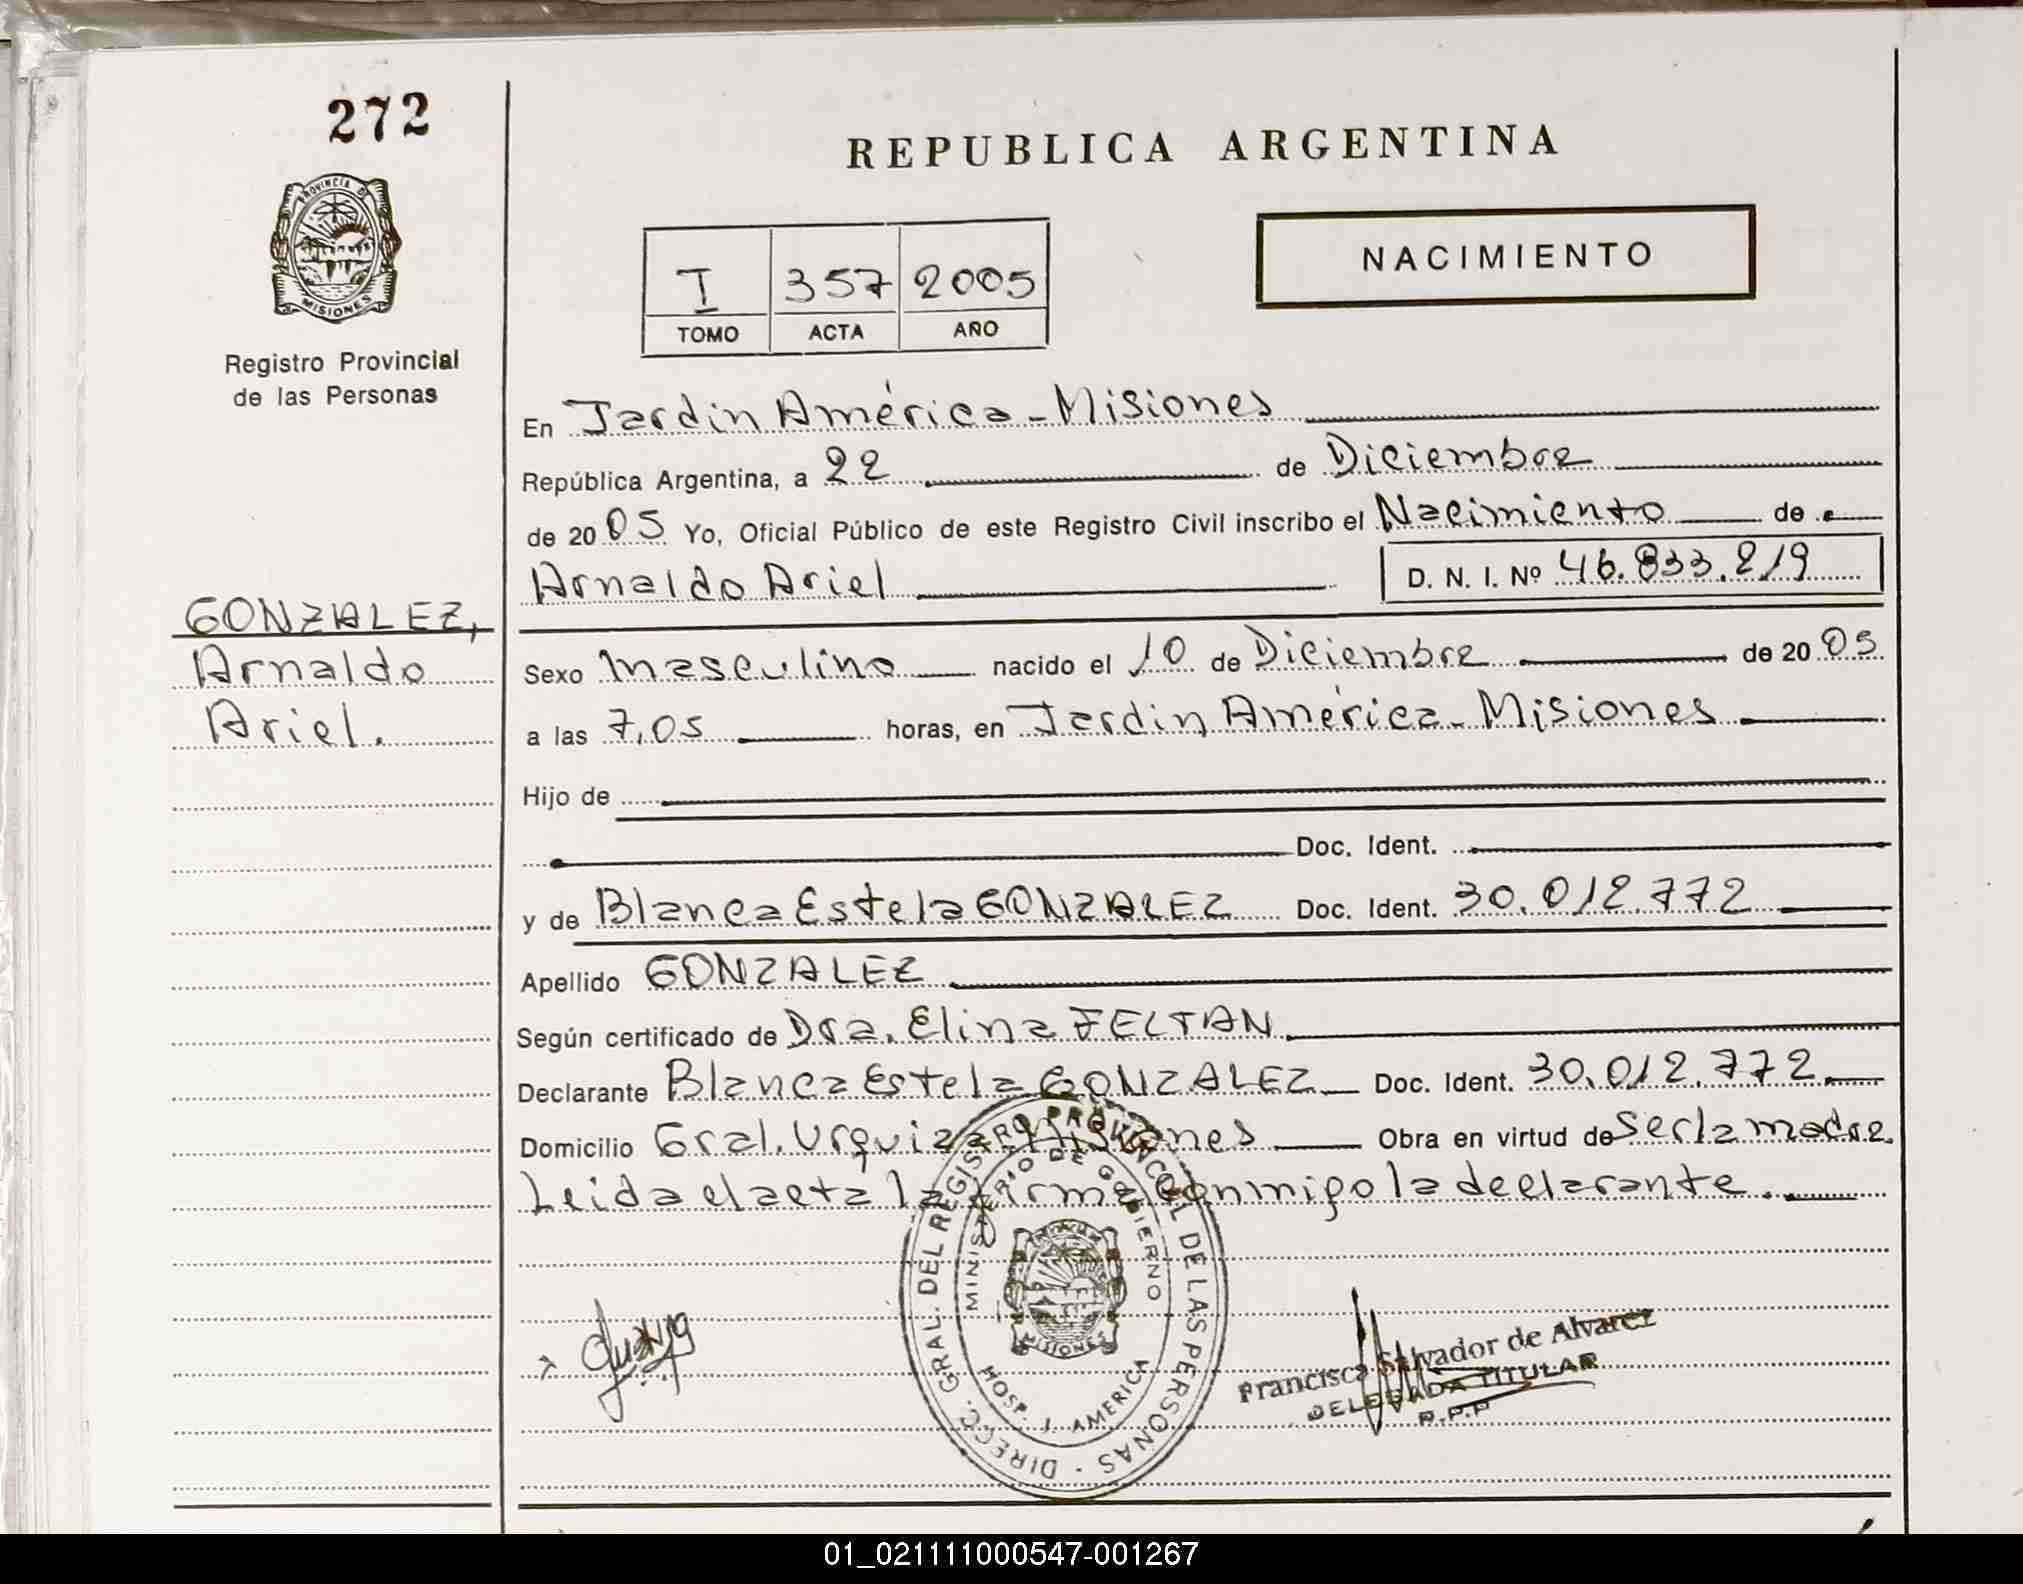 272
PROVINCIA DE
MISIONES
Registro Provincial
de las Personas
GONZALEZ,
Arnaldo
Ariel.
REPUBLICA ARGENTINA
I 357 2005
TOMO ACTA AÑO
NACIMIENTO
En Jardin América - Misiones
República Argentina, a 22 de Diciembre
de 2005 Yo, Oficial Público de este Registro Civil inscribo el Nacimiento de
Arnaldo Ariel D. N. I. Nº 46.833.219
Sexo masculino nacido el 10 de Diciembre de 2005
a las 7,05 horas, en Jardin América - Misiones
Hijo de
Doc. Ident.
y de Blanca Estela GONZALEZ Doc. Ident. 30.012.772
Apellido GONZALEZ
Según certificado de Dra. Elina FELTAN
Declarante Blanca Estela GONZALEZ Doc. Ident. 30.012.772
Domicilio Gral. Urquiza Misiones Obra en virtud de ser la madre.
Leida el acta la firma conmigo la declarante.
DIRECC. GRAL. DEL REGISTRO PROVINCIAL DE LAS PERSONAS
MINISTERIO DE GOBIERNO
MISIONES
HOSP. J. AMERICA
Francisca Salvador de Alvarez
DELEGADA TITULAR
R.P.P
01_021111000547-001267